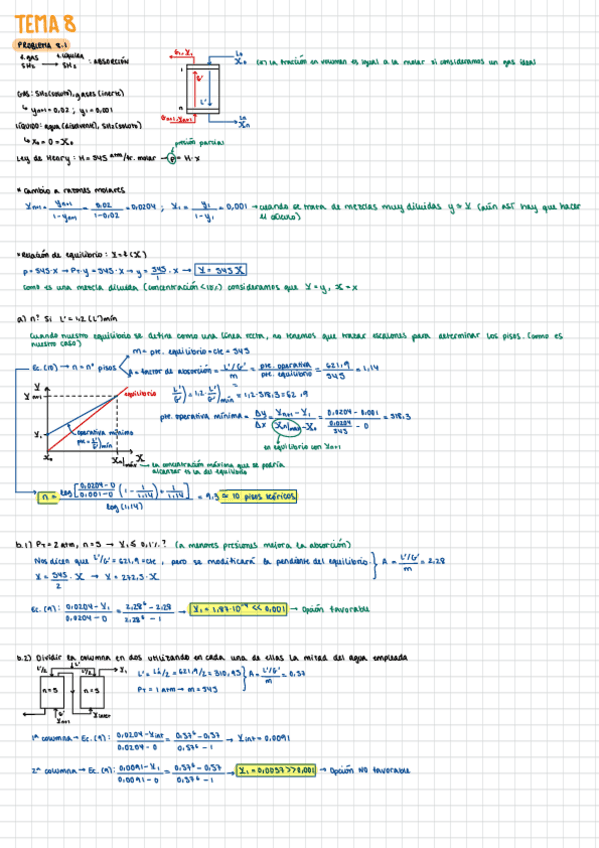 TEMA 8
PROBLEMA 8.1
f. gas f. líquida
SH₂ → SH₂ : ABSORCIÓN
G₁, Y₁
L₀
X₀
(*) La fracción en volumen es igual a la molar si consideramos un gas ideal
1
G'
L'
n
Gn+1, Yn+1
Ln
Xn
GAS: SH₂ (soluto), gases (inerte)
↳ yn+1 = 0,02 ; y₁ = 0,001
LÍQUIDO: agua (disolvente), SH₂ (soluto)
↳ x₀ = 0 = X₀
presión parcial
Ley de Henry: H = 545 atm/fr. molar → p = H·x
* Cambio a razones molares
Yn+1 = yn+1 / (1 - yn+1) = 0,02 / (1 - 0,02) = 0,0204 ; Y₁ = y₁ / (1 - y₁) = 0,001 → cuando se trata de mezclas muy diluidas y ≈ Y (aún así hay que hacer
el cálculo)
* Relación de equilibrio: Y = f(X)
p = 545·x → PT·y = 545·x → y = 545/1 · x → Y = 545 X
Como es una mezcla diluida (concentración <10%) consideramos que Y = y, X = x
a) n? Si L' = 1,2 (L')mín
Cuando nuestro equilibrio se define como una línea recta, no tenemos que trazar escalones para determinar los pisos. (como es
nuestro caso)
m = pte. equilibrio = cte = 545
Ec. (10) → n = nº pisos
A = factor de absorción = L'/G' / m = pte. operativa / pte. equilibrio = 621,9 / 545 = 1,14
Y
Yn+1
equilibrio
(L'/G') = 1,2·(L'/G')mín = 1,2·518,3 = 62,9
pte. operativa mínima = Δy/Δx = (Yn+1 - Y₁) / (Xn|máx - X₀) = (0,0204 - 0,001) / (0,0204/545 - 0) = 518,3
Y₁
operativa mínima
pte = (L'/G')mín
en equilibrio con Yn+1
X₀
Xn|máx
X
→ la concentración máxima que se podría
alcanzar es la del equilibrio
n = log[(0,0204-0)/(0,001-0) (1 - 1/1,14) + 1/1,14] / log(1,14) = 9,3 ≈ 10 pisos teóricos
b.1) PT = 2 atm, n = 5 → Y₁ ≤ 0,1%? (a menores presiones mejora la absorción)
Nos dicen que L'/G' = 621,9 = cte, pero se modificará la pendiente del equilibrio. } A = L'/G' / m = 2,28
Y = 545/2 · X → Y = 272,5·X
Ec. (9): (0,0204 - Y₁) / (0,0204 - 0) = (2,28⁶ - 2,28) / (2,28⁶ - 1) → Y₁ = 1,87·10⁻⁴ << 0,001 → Opción favorable
b.2) Dividir la columna en dos utilizando en cada una de ellas la mitad del agua empleada
L'/2
L'/2
Y₁
n = 5
n = 5
G'
Yn+1
Yinter
L' = L'a/2 = 621,9/2 = 310,95 } A = L'/G' / m = 0,57
PT = 1 atm → m = 545
1ª columna → Ec. (9): (0,0204 - Yint) / (0,0204 - 0) = (0,57⁶ - 0,57) / (0,57⁶ - 1) → Yint = 0,0091
2ª columna → Ec. (9): (0,0091 - Y₁) / (0,0091 - 0) = (0,57⁶ - 0,57) / (0,57⁶ - 1) → Y₁ = 0,0057 >> 0,001 → Opción NO favorable